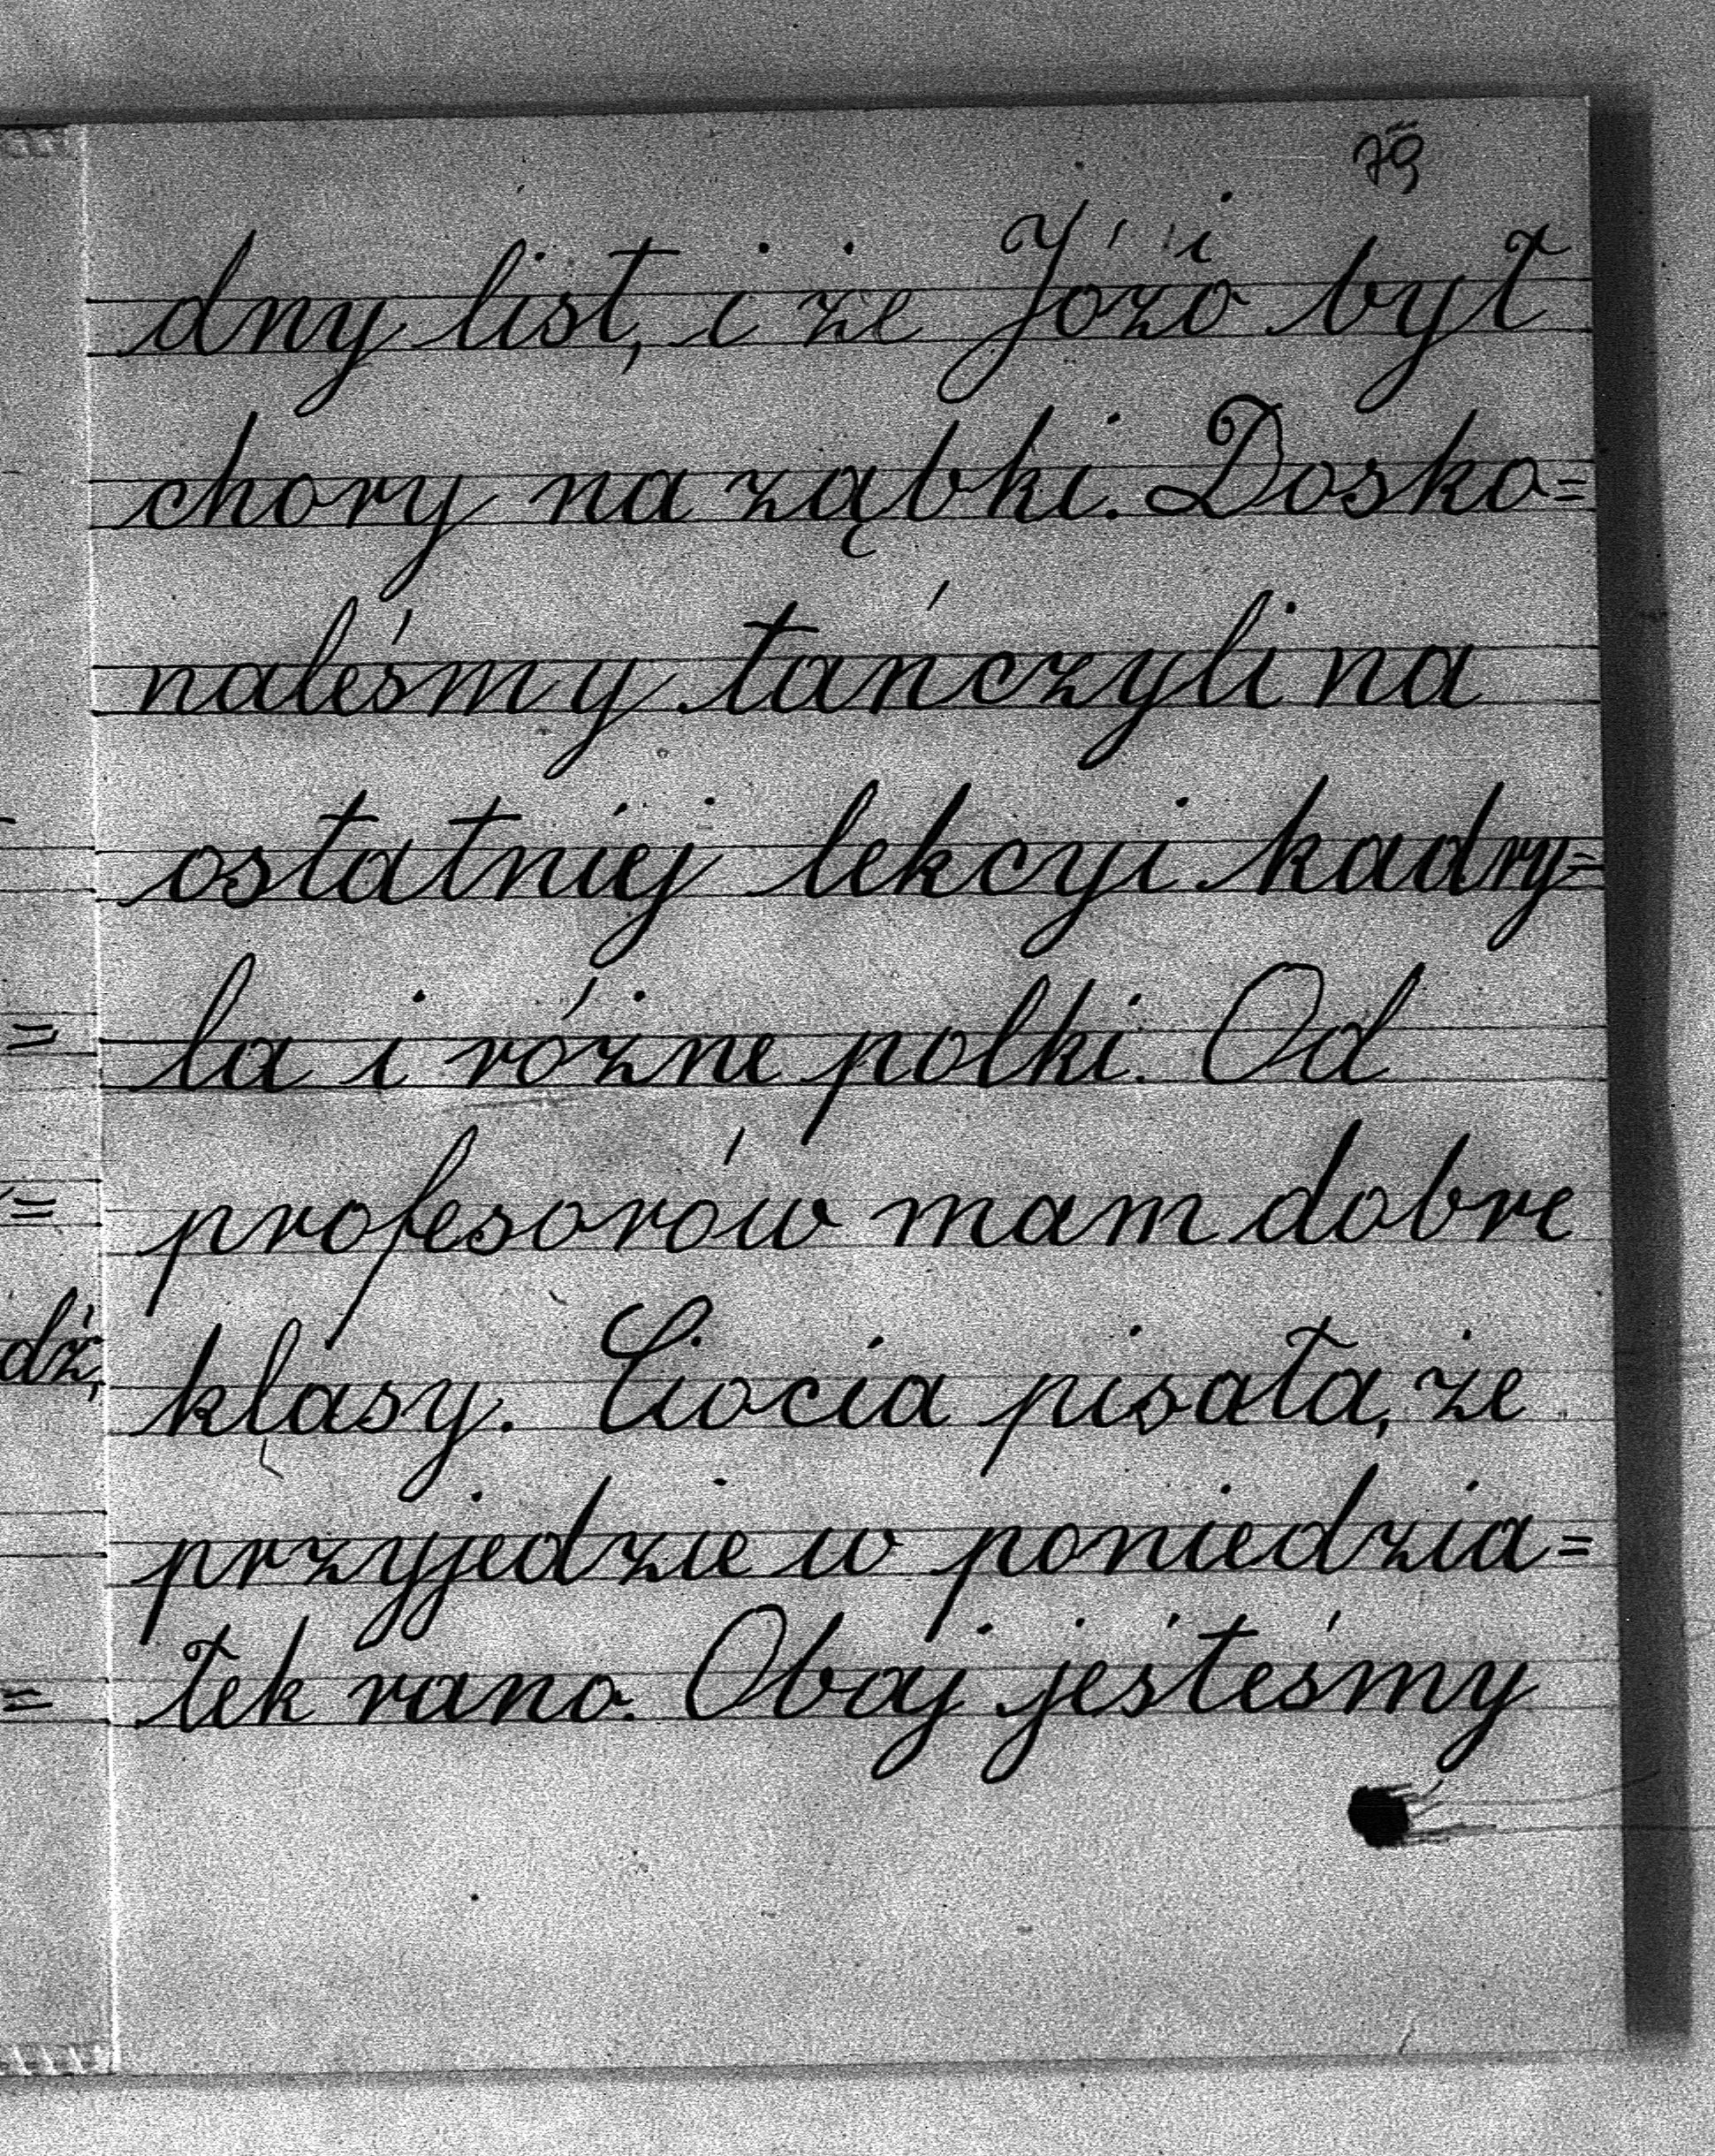 79
dny list, i że Józio był
chory na ząbki. Dosko=
naleśmy tańczyli na
ostatniej lekcyi kadry=
la i różne polki. Od
profesorów mam dobre
klasy. Ciocia pisała, że
przyjedzie w poniedzia=
łek rano. Oboj jeśteśmy
dź,